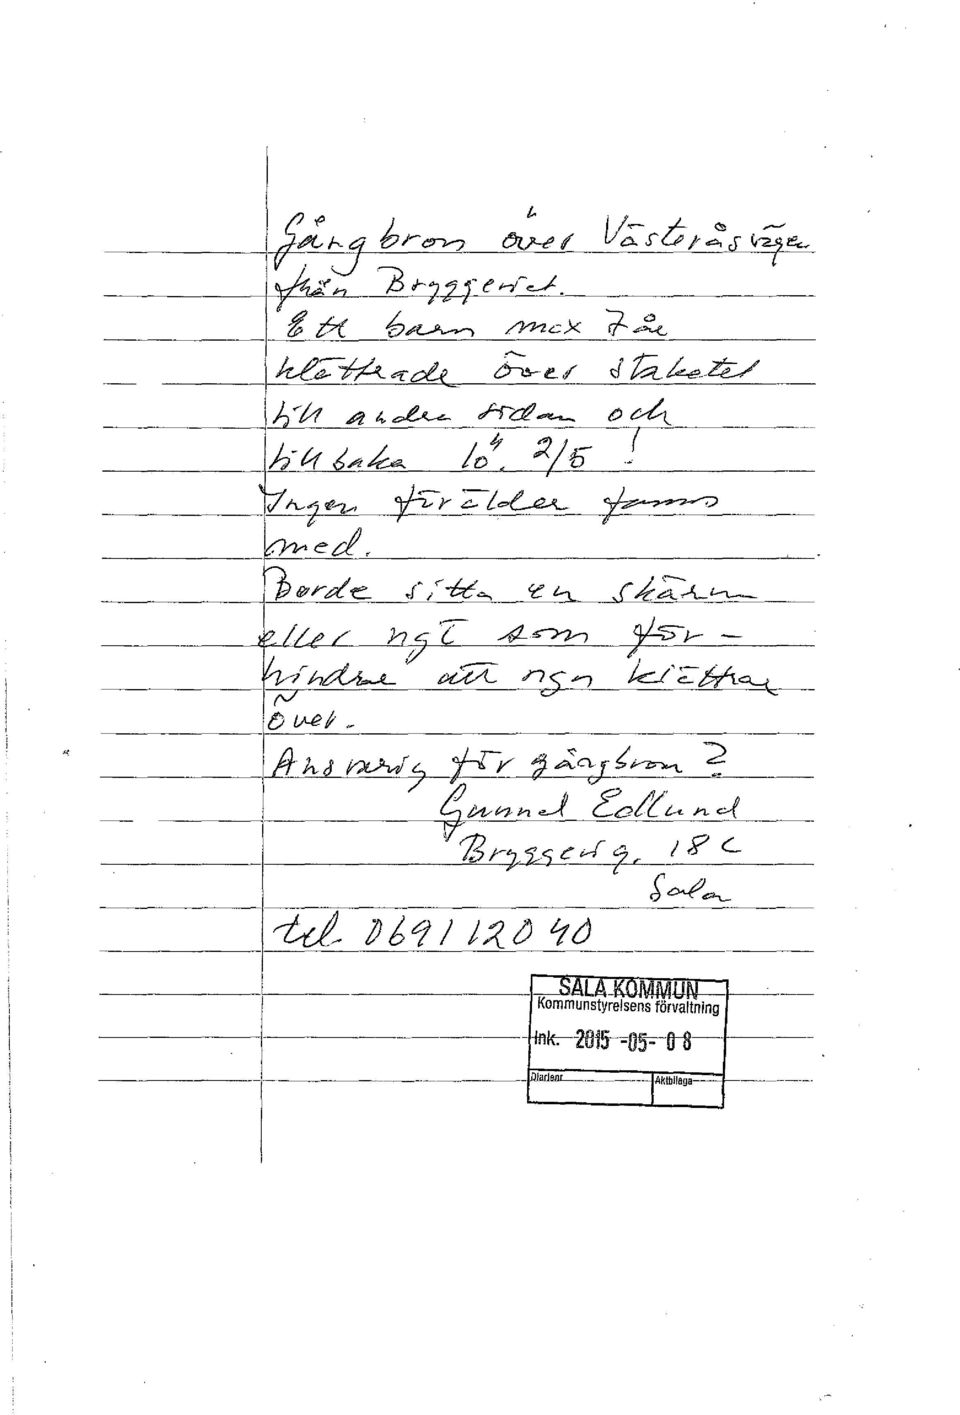 Gångbron över Västeråsvägen
från Bryggeriet.
Ett barn max 7 år
klättrade över staketet
till andra sidan och
tillbaka lö. 2/5 !
Ingen förälder fanns
med.
Borde sitta en skärm
eller ngt som för-
hindrar att ngn klättrar
över.
Ansvarig för gångbron ?
Gunnel Edlund
Bryggerig. 18 C
Sala
tel. 0691 120 40
SALA KOMMUN
Kommunstyrelsens förvaltning
Ink. 2015 -05- 0 8
Diarienr Aktbilaga